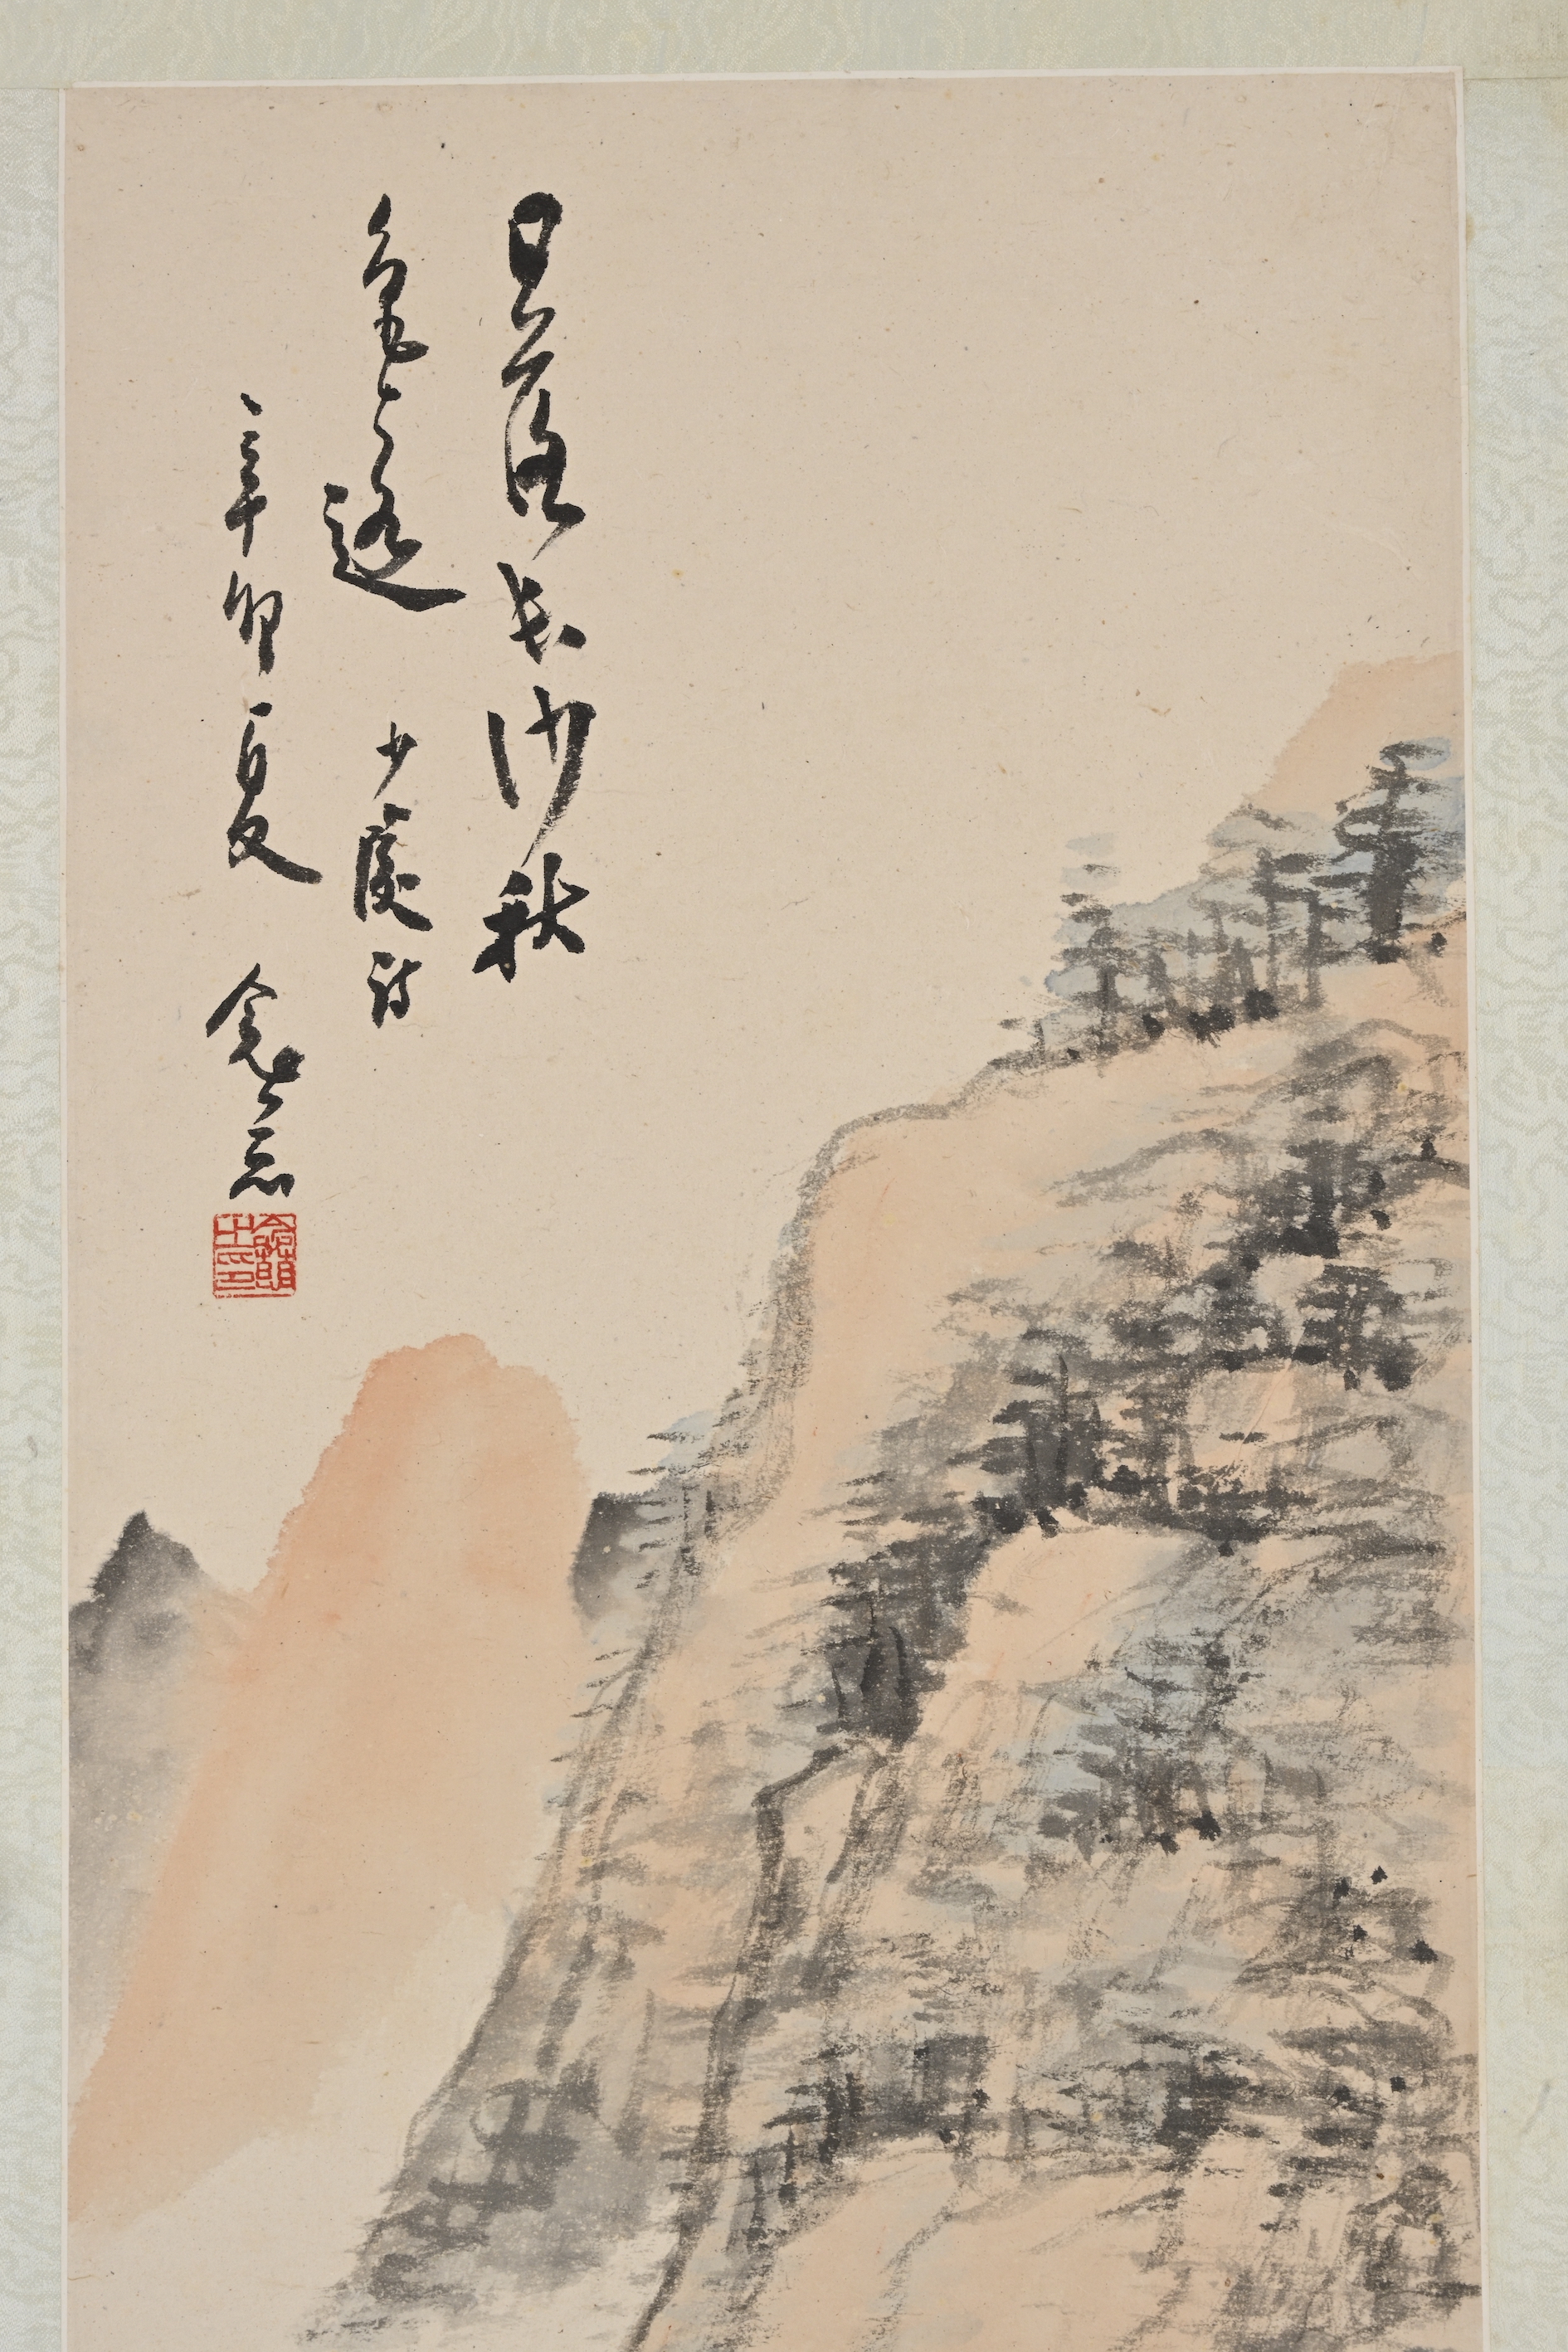 日落長沙秋
色遠 少陵詩
辛卯夏